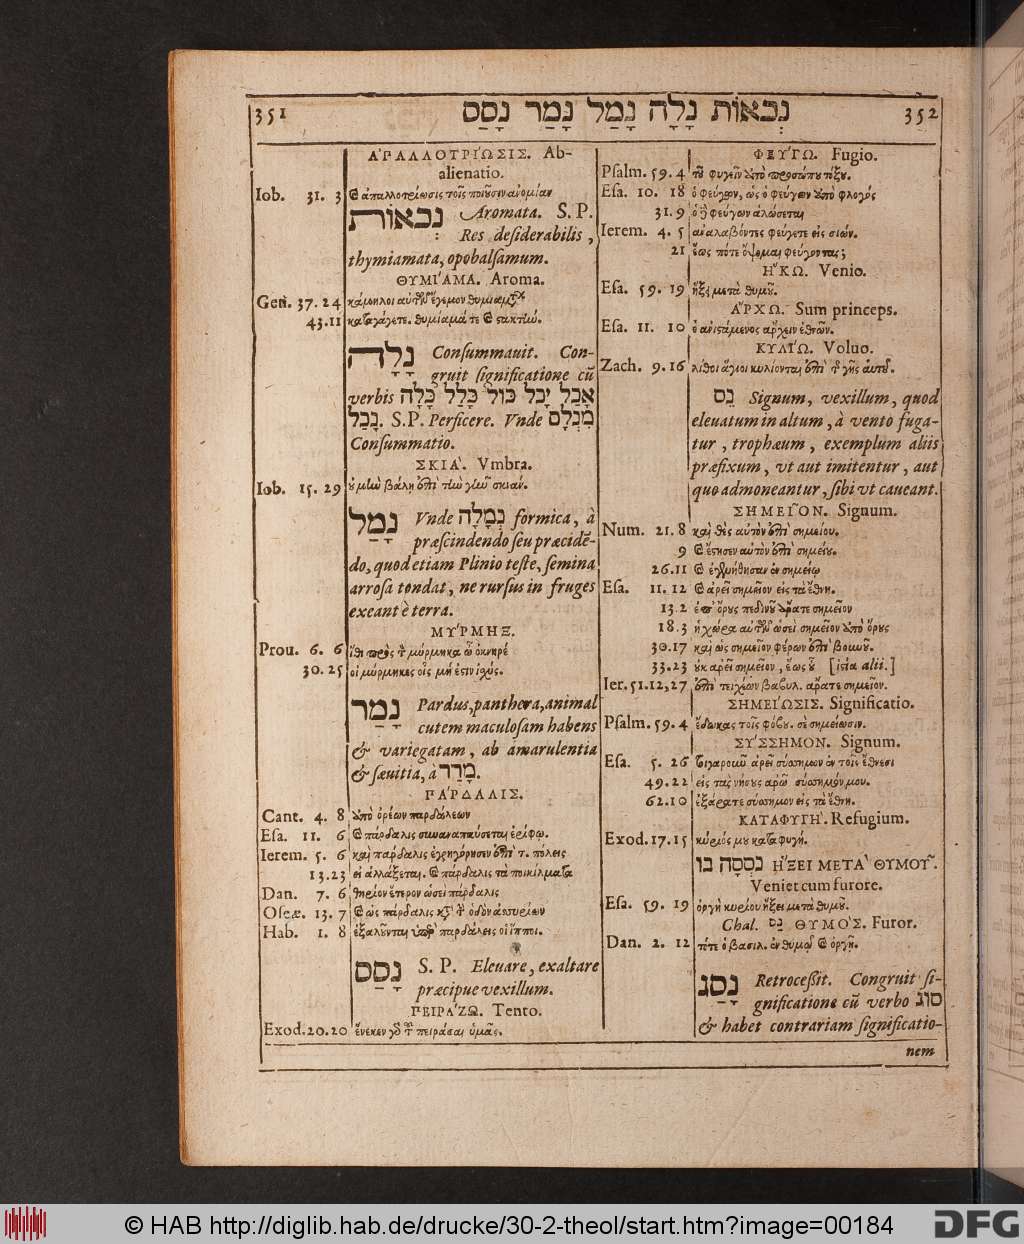 351 נְכאוֹת נָלָה נָמַל נָמַר נָסַס 352
ἈΠΑΛΛΟΤΡΙΏΣΙΣ. Ab-
alienatio.
Iob. 31. 3 ϗ ἀπαλλοτρίωσις τοῖς ποιοῦσιν ἀνομίαν
נְכאוֹת Aromata. S. P.
Res desiderabilis,
thymiamata, opobalsamum.
ΘΥΜΙΆΜΑ. Aroma.
Gen. 37. 24 κάμηλοι αὐτῶν ἔγεμον θυμιαμάτων
43.11 καταγάγετε. θυμίαμά τε ϗ στακτὴν.
נָלָה Consummauit. Con-
gruit significatione cũ
verbis אָכַל יָכַל כּוּל כָּלַל כָּלָה
נָכַל. S. P. Perficere. Vnde מִנְלָם
Consummatio.
ΣΚΙᾺ. Vmbra.
Iob. 15. 29 οὐ μὴ βάλῃ ἐπὶ τὴν γῆν σκιάν.
נָמַל Vnde נְמָלָה formica, à
præscindendo seu præcidẽ-
do, quod etiam Plinio teste, semina
arrosa tondat, ne rursus in fruges
exeant è terra.
ΜΎΡΜΗΞ.
Prou. 6. 6 ἴθι πρὸς τὸν μύρμηκα ὦ ὀκνηρέ
30. 25 οἱ μύρμηκες οἷς μή ἐστιν ἰσχύς.
נָמַר Pardus, panthera, animal
cutem maculosam habens
& variegatam, ab amarulentia
& sæuitia, à מָרַר.
ΠΆΡΔΑΛΙΣ.
Cant. 4. 8 ἀπὸ ὀρέων παρδάλεων
Esa. 11. 6 ϗ πάρδαλις συναναπαύσεται ἐρίφῳ.
Ierem. 5. 6 καὶ πάρδαλις ἐγρηγόρησεν ἐπὶ τ. πόλεις
13.23 εἰ ἀλλάξεται. ϗ πάρδαλις τὰ ποικίλματα
Dan. 7. 6 θηρίον ἕτερον ὡσεὶ πάρδαλις
Oseæ. 13. 7 ϗ ὡς πάρδαλις κατὰ τὴν ὁδὸν ἀσσυρίων
Hab. 1. 8 ἐξαλοῦνται ὑπὲρ παρδάλεις οἱ ἵπποι.
נָסַס S. P. Eleuare, exaltare
præcipue vexillum.
ΠΕΙΡΆΖΩ. Tento.
Exod.20.20 ἕνεκεν γὰρ τοῦ πειράσαι ὑμᾶς.
ΦΕΎΓΩ. Fugio.
Psalm. 59. 4 τοῦ φυγεῖν ἀπὸ προσώπου τόξου.
Esa. 10. 18 ὁ φεύγων, ὡς ὁ φεύγων ἀπὸ φλογός
31. 9 ὁ δὲ φεύγων ἁλώσεται
Ierem. 4. 5 ἀναλαβόντες φεύγετε εἰς σιών.
21 ἕως πότε ὄψομαι φεύγοντας;
ἭΚΩ. Venio.
Esa. 59. 19 ἥξει μετὰ θυμοῦ.
ἌΡΧΩ. Sum princeps.
Esa. 11. 10 ὁ ἀνιστάμενος ἄρχειν ἐθνῶν.
ΚΥΛΊΩ. Voluo.
Zach. 9. 16 λίθοι ἅγιοι κυλίονται ἐπὶ τῆς γῆς αὐτοῦ.
נֵס Signum, vexillum, quod
eleuatum in altum, à vento fuga-
tur, trophæum, exemplum aliis
præfixum, vt aut imitentur, aut
quo admoneantur, sibi vt caueant.
ΣΗΜΕΙ͂ΟΝ. Signum.
Num. 21. 8 καὶ θὲς αὐτὸν ἐπὶ σημείου.
9 ϗ ἔστησεν αὐτὸν ἐπὶ σημείου.
26.11 ϗ ἐγενήθησαν ἐν σημείῳ
Esa. 11. 12 ϗ ἀρεῖ σημεῖον εἰς τὰ ἔθνη.
13. 2 ἐπ' ὄρους πεδινοῦ ἄρατε σημεῖον
18. 3 ἡ χώρα αὐτῶν ὡσεὶ σημεῖον ἀπὸ ὄρους
30.17 καὶ ὡς σημεῖον φέρων ἐπὶ βουνοῦ.
33.23 οὐκ ἀρεῖ σημεῖον, ἕως οὗ [ἱστία alii.]
Ier. 51.12,27 ἐπὶ τειχέων βαβυλ. ἄρατε σημεῖον.
ΣΗΜΕΊΩΣΙΣ. Significatio.
Psalm. 59. 4 ἔδωκας τοῖς φόβου. σε σημείωσιν.
ΣΎΣΣΗΜΟΝ. Signum.
Esa. 5. 26 τοιγαροῦν ἀρεῖ σύσσημον ἐν τοῖς ἔθνεσι
49. 22 εἰς τὰς νήσους ἀρῶ σύσσημόν μου.
62.10 ἐξάρατε σύσσημον εἰς τὰ ἔθνη.
ΚΑΤΑΦΥΓΉ. Refugium.
Exod.17.15 κύριός μου καταφυγή.
נְסְסָה בוֹ ἭΞΕΙ ΜΕΤᾺ ΘΥΜΟΥ͂.
Veniet cum furore.
Esa. 59. 19 ὀργὴ κυρίου ἥξει μετὰ θυμοῦ.
Chal. נְס ΘΥΜΌΣ. Furor.
Dan. 2. 12 τότε ὁ βασιλ. ἐν θυμῷ ϗ ὀργῇ.
נָסַג Retrocessit. Congruit si-
gnificatione cũ verbo סוּג
& habet contrariam significatio-
nem
© HAB http://diglib.hab.de/drucke/30-2-theol/start.htm?image=00184 DFG